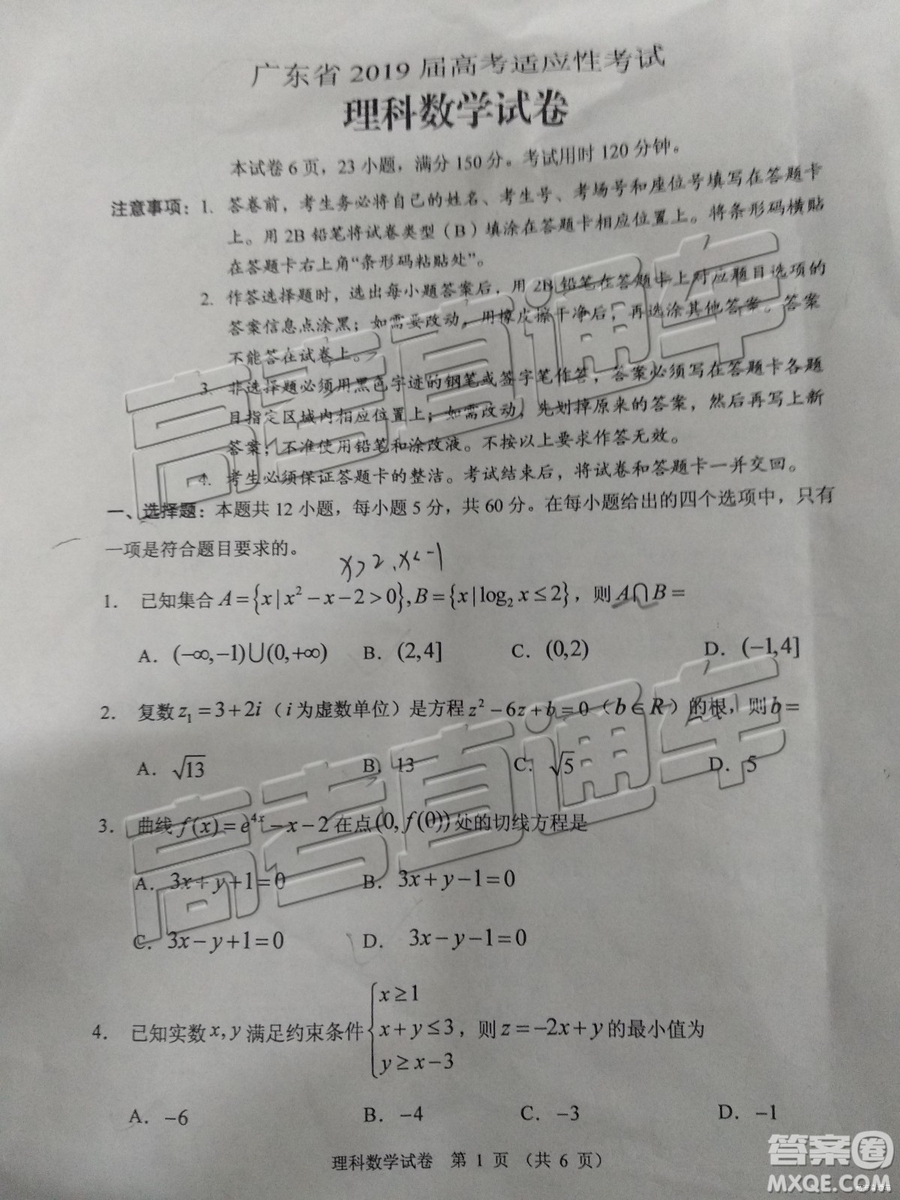 广东省 2019 届高考适应性考试
理科数学试卷
本试卷 6 页，23 小题，满分 150 分。考试用时 120 分钟。
注意事项：1. 答卷前，考生务必将自己的姓名、考生号、考场号和座位号填写在答题卡
上。用 2B 铅笔将试卷类型（B）填涂在答题卡相应位置上。将条形码横贴
在答题卡右上角“条形码粘贴处”。
2. 作答选择题时，选出每小题答案后，用 2B 铅笔在答题卡上对应题目选项的
答案信息点涂黑；如需要改动，用橡皮擦干净后，再选涂其他答案。答案
不能答在试卷上。
3. 非选择题必须用黑色字迹的钢笔或签字笔作答，答案必须写在答题卡各题
目指定区域内相应位置上；如需改动，先划掉原来的答案，然后再写上新
答案；不准使用铅笔和涂改液。不按以上要求作答无效。
4. 考生必须保证答题卡的整洁。考试结束后，将试卷和答题卡一并交回。
一、选择题：本题共 12 小题，每小题 5 分，共 60 分。在每小题给出的四个选项中，只有
一项是符合题目要求的。
x>2, x<-1
1. 已知集合 A={x|x²-x-2>0}, B={x|log₂x≤2}，则 A∩B=
A. (-∞,-1)∪(0,+∞) B. (2,4] C. (0,2) D. (-1,4]
2. 复数 z₁=3+2i（i 为虚数单位）是方程 z²-6z+b=0（b∈R）的根，则 b=
A. √13 B. 13 C. √5 D. 5
3. 曲线 f(x)=e⁴ˣ-x-2 在点 (0, f(0)) 处的切线方程是
A. 3x+y+1=0 B. 3x+y-1=0
C. 3x-y+1=0 D. 3x-y-1=0
4. 已知实数 x, y 满足约束条件 {x≥1
x+y≤3，则 z=-2x+y 的最小值为
y≥x-3
A. -6 B. -4 C. -3 D. -1
理科数学试卷 第 1 页 （共 6 页）
高考直通车
高考直通车
答案圈
MXQE.COM